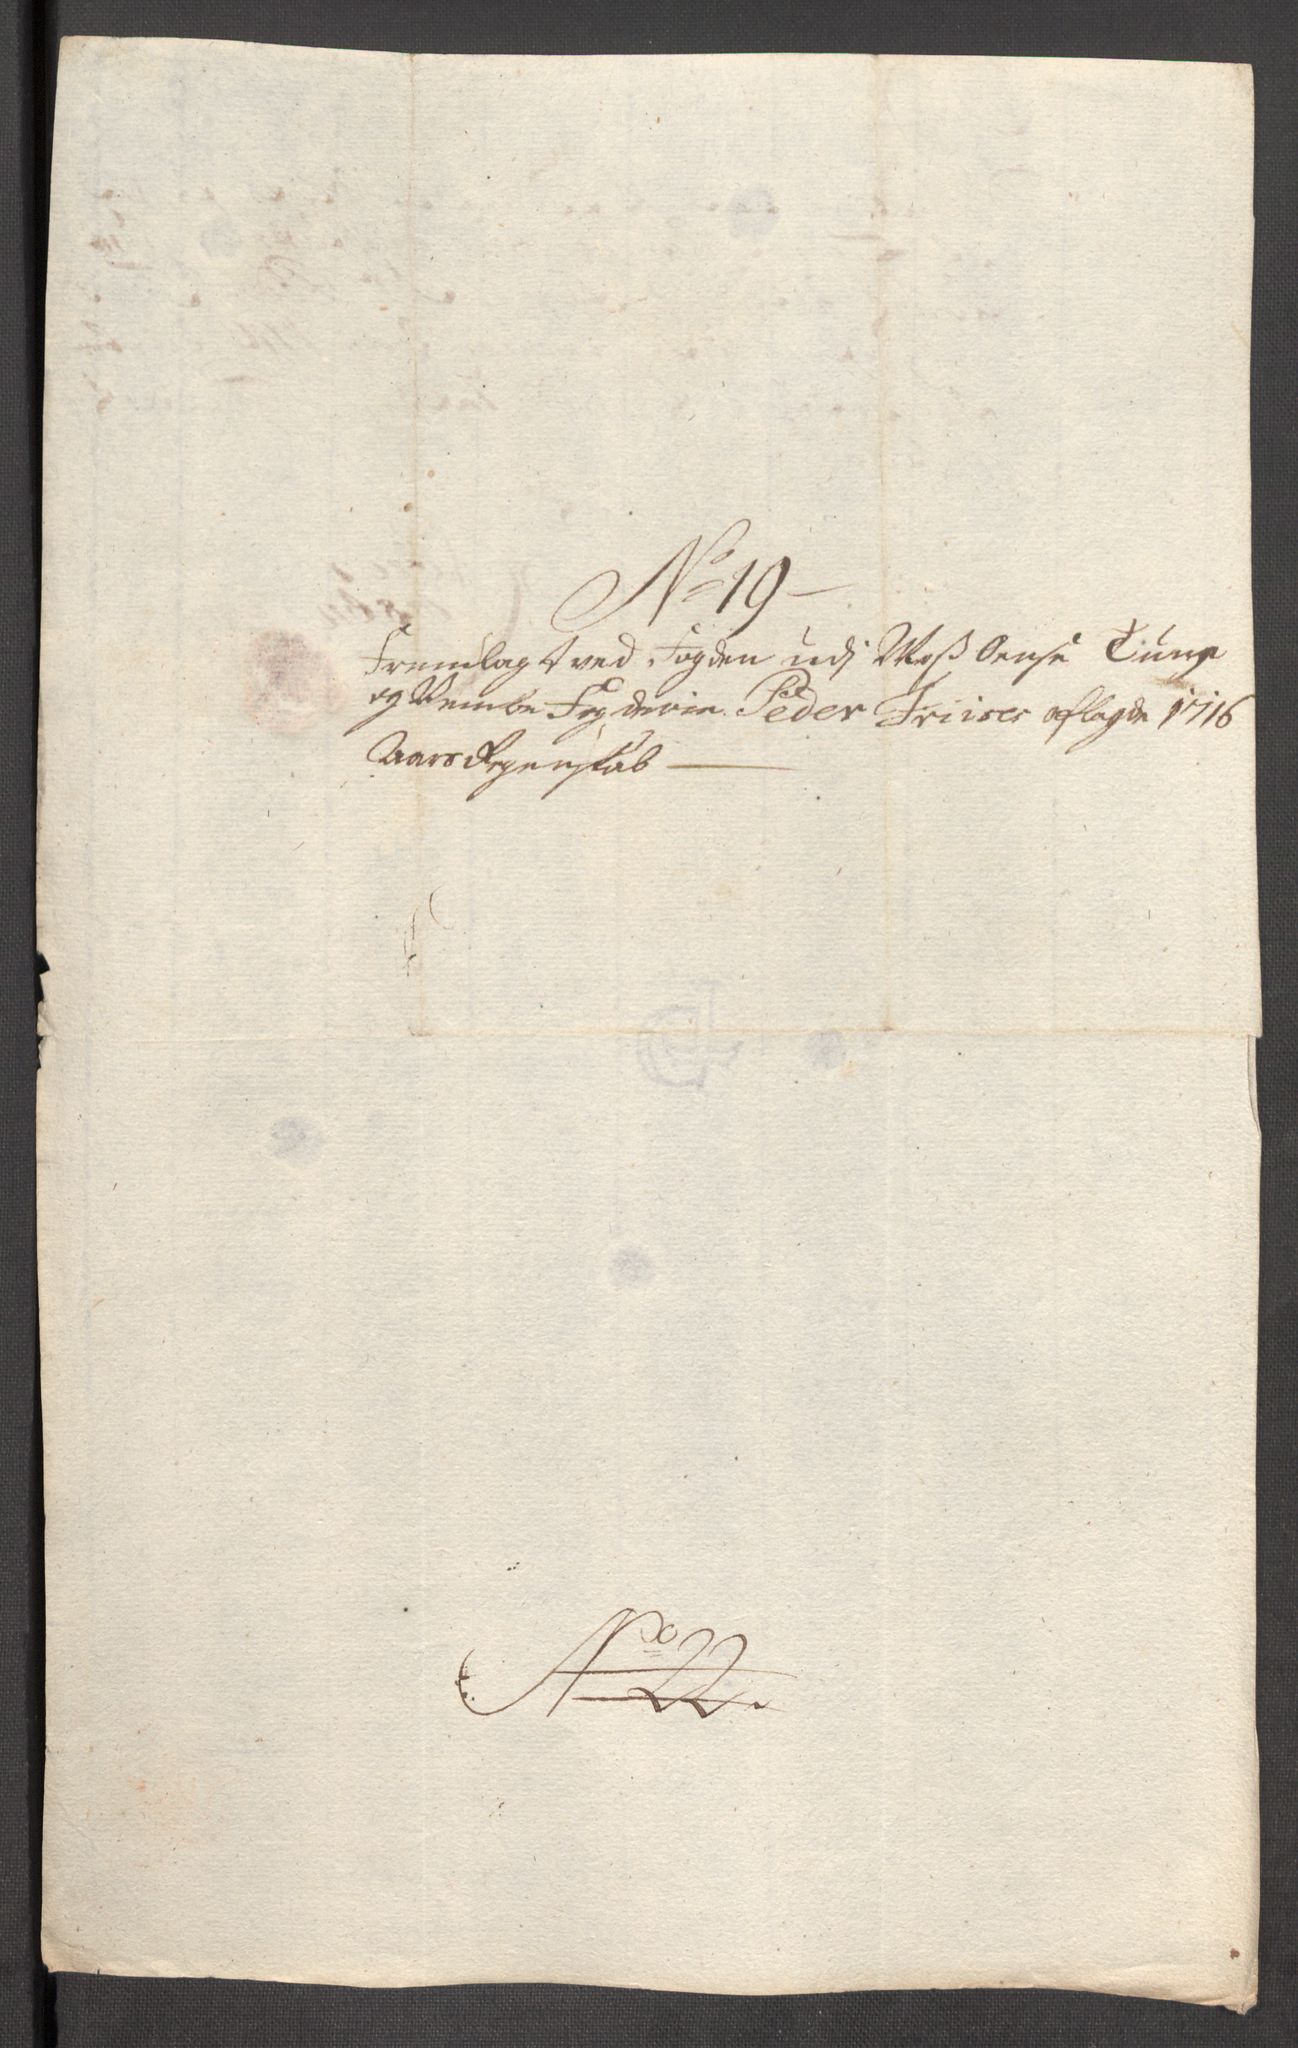 No 19
Fremlagt ved Fogden udj Moss Oensøe Tune
og Wembe Fogderie Peder Friises aflagde 1716
Aars Regenskab
No 22.